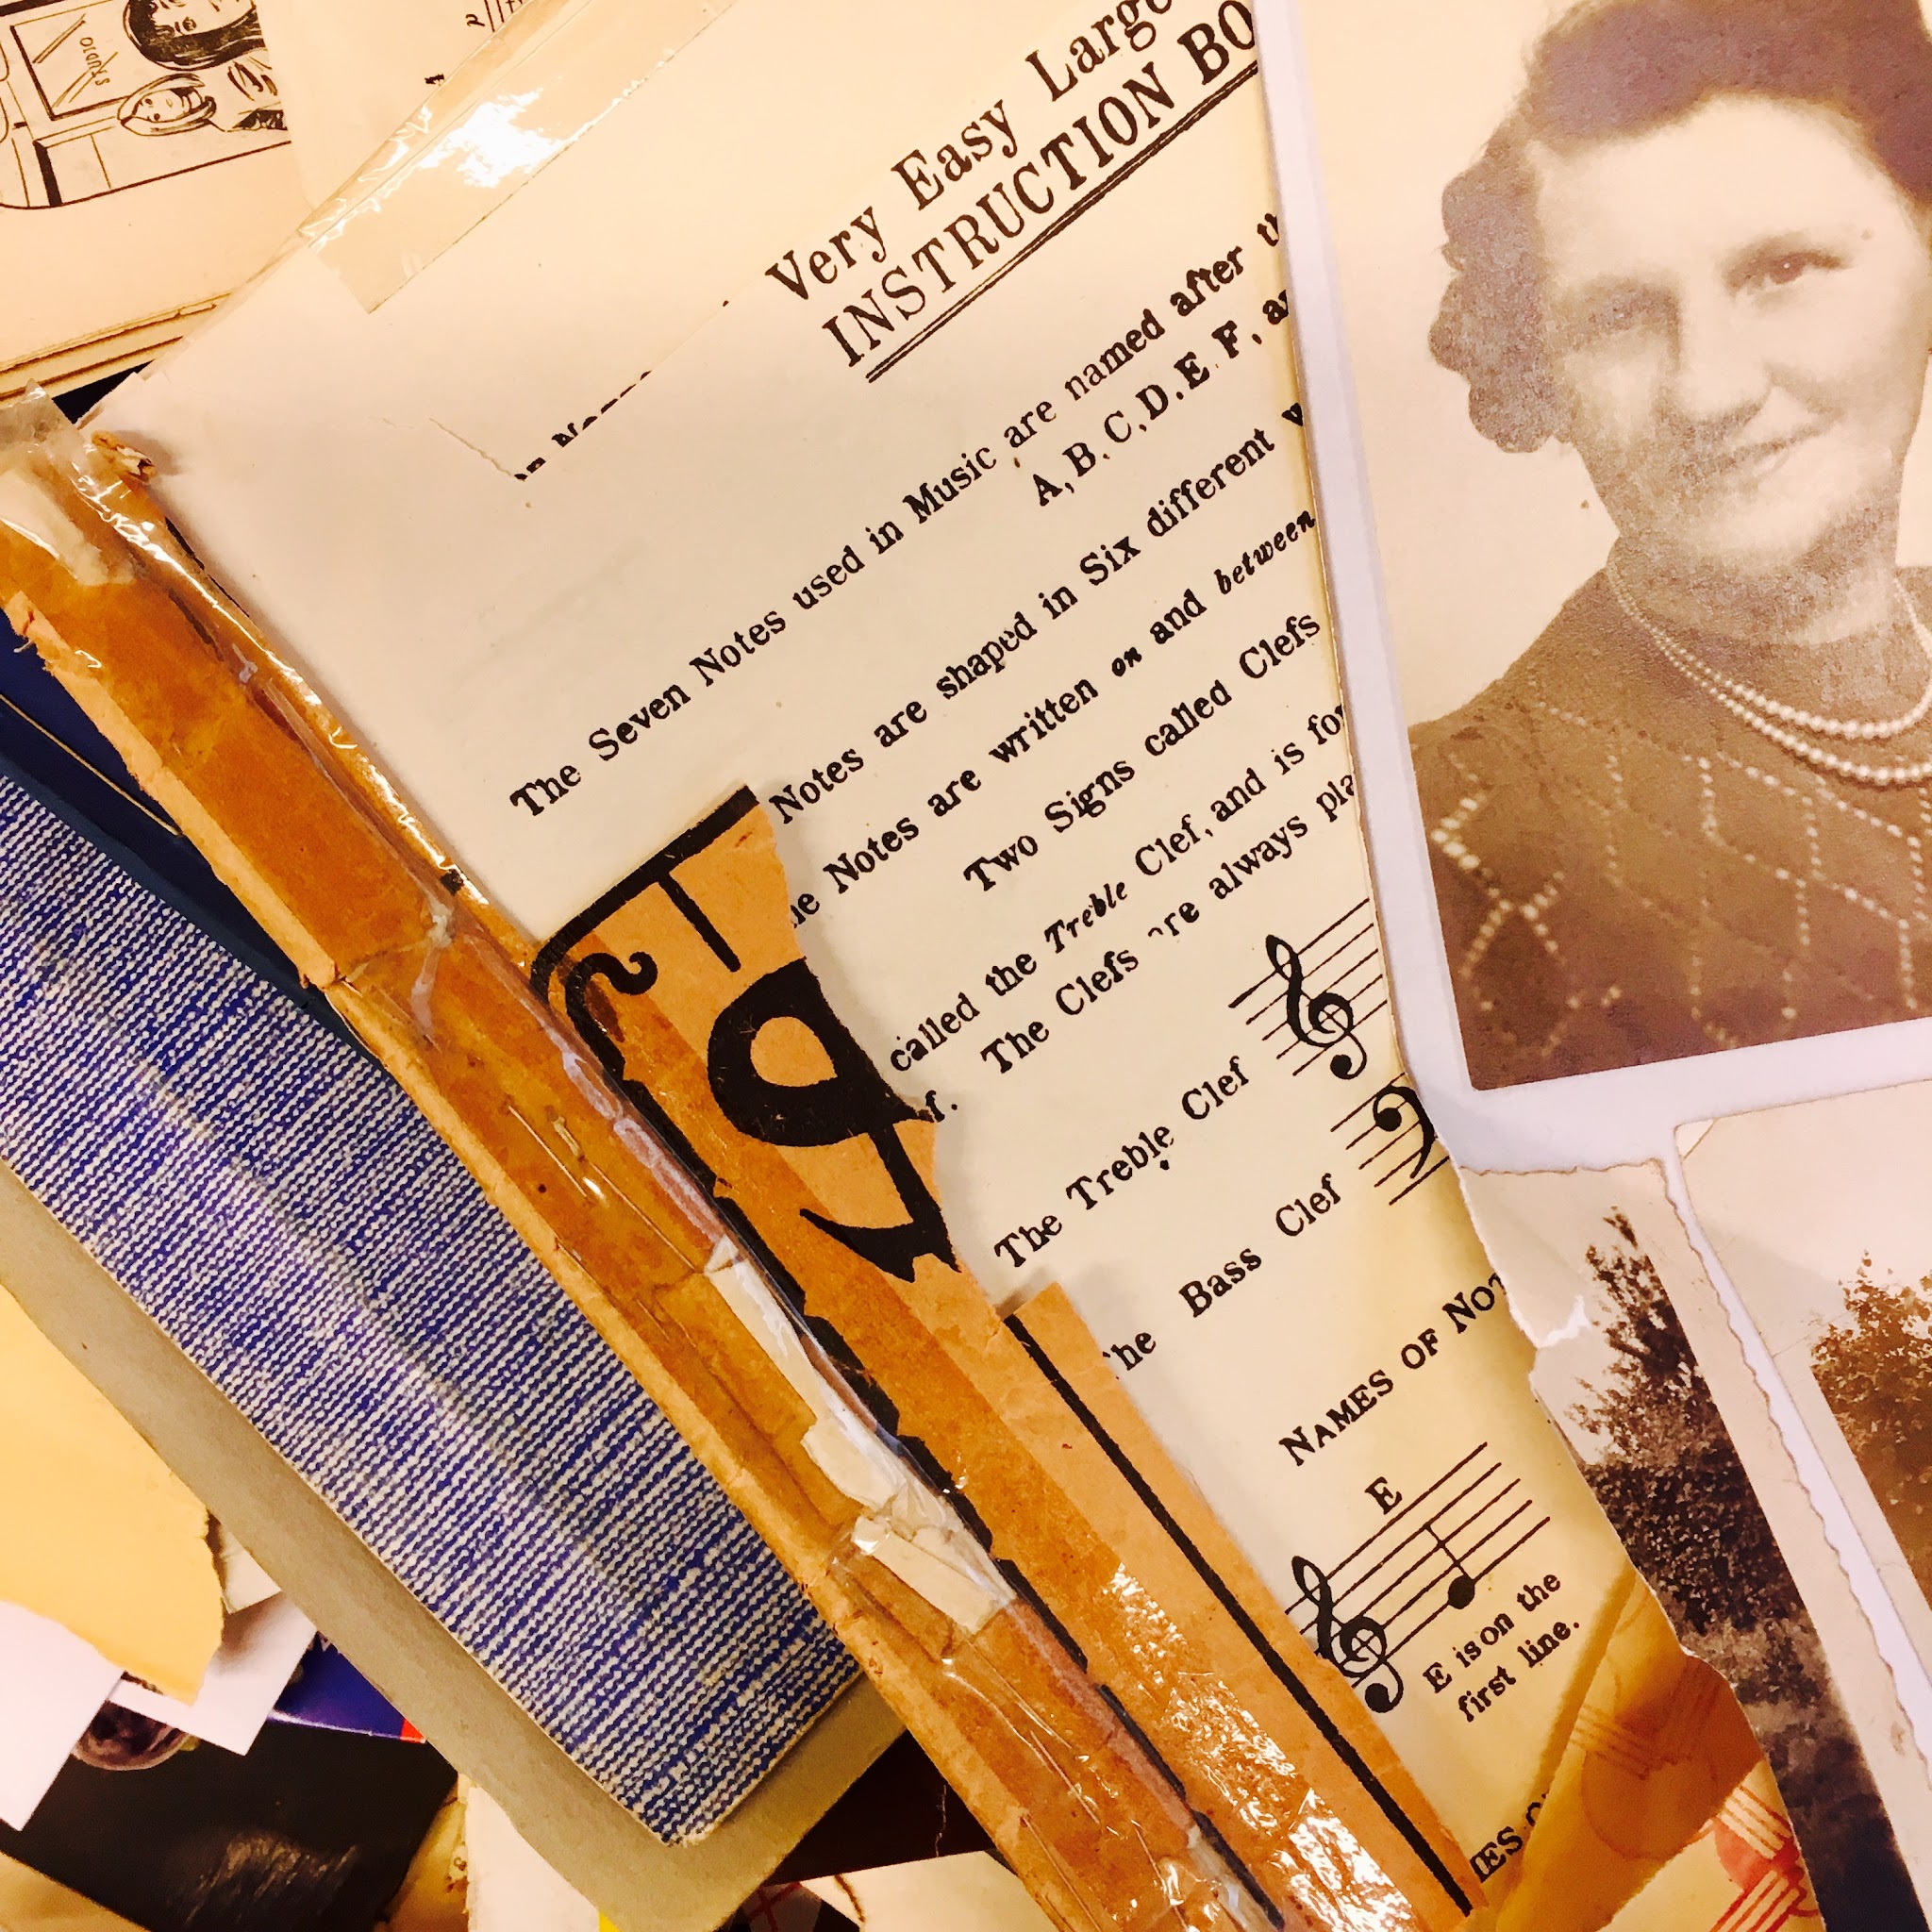 Very Easy Large
INSTRUCTION BO
The Seven Notes used in Music are named after
A, B, C, D. E. F, a
Notes are shaped in Six different
Notes are written on and between
Two Signs called Clefs
called the Treble Clef, and is
The Clefs are always
The Treble Clef
Bass Clef
NAMES OF NOT
E
E is on the
first line.